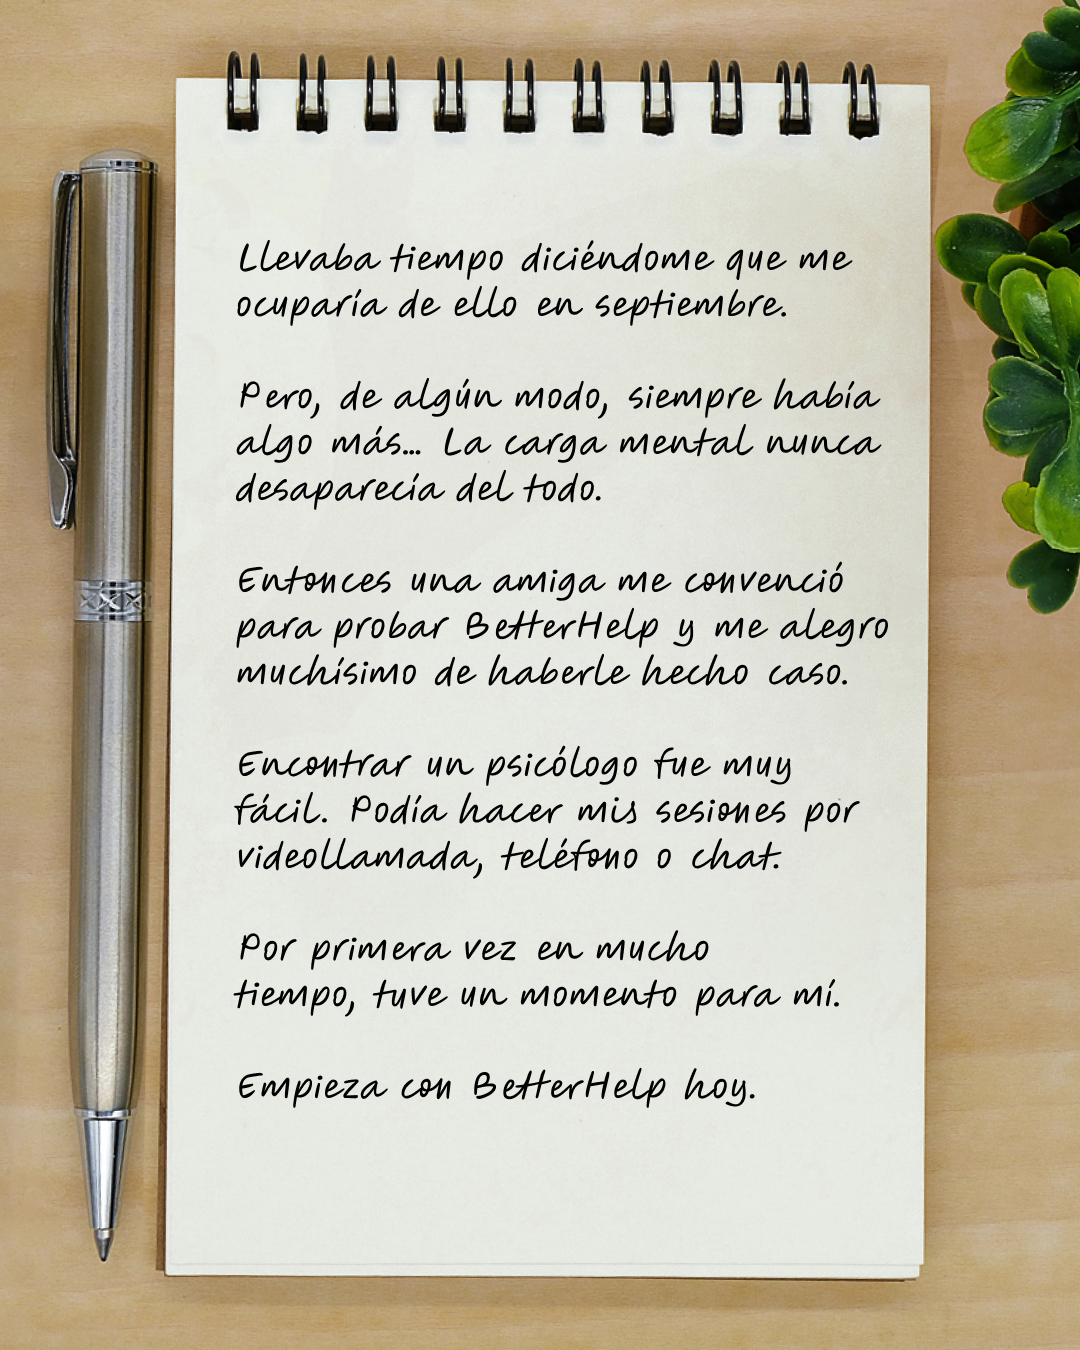 Llevaba tiempo diciéndome que me
ocuparía de ello en septiembre.
Pero, de algún modo, siempre había
algo más... La carga mental nunca
desaparecía del todo.
Entonces una amiga me convenció
para probar BetterHelp y me alegro
muchísimo de haberle hecho caso.
Encontrar un psicólogo fue muy
fácil. Podía hacer mis sesiones por
videollamada, teléfono o chat.
Por primera vez en mucho
tiempo, tuve un momento para mí.
Empieza con BetterHelp hoy.